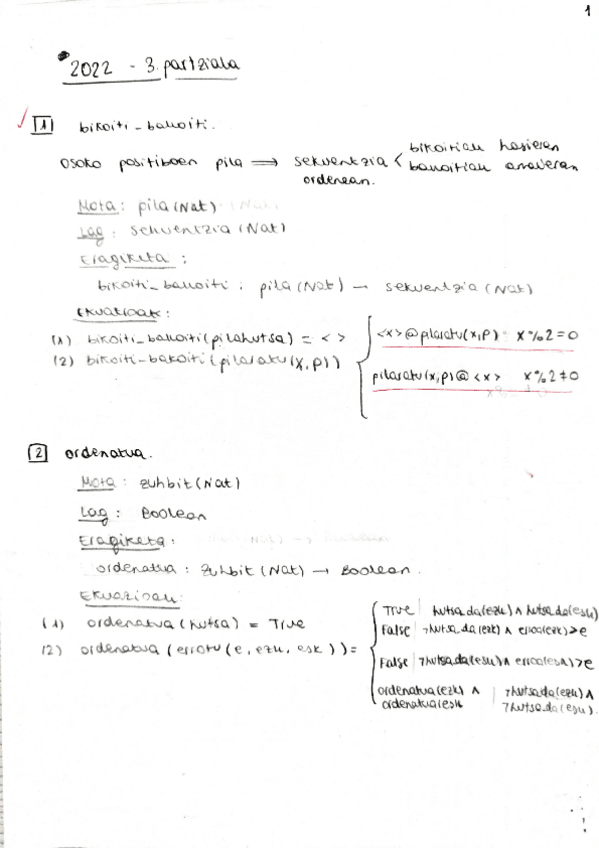 1
2022 - 3. partziala
1 bikoiti_bakoiti.
osoko positiboen pila ⟹ sekuentzia < bikoitiak hasieran
bakoitiak amaieran
ordenean.
Mota: pila(Nat)
Lag: sekuentzia (Nat)
Eragiketa:
bikoiti_bakoiti : pila(Nat) → sekuentzia (Nat)
Ekuazioak:
(1) bikoiti_bakoiti(pilahutsa) = < >
<x>@pilaratu(x,p) x%2=0
(2) bikoiti-bakoiti(pilaratu(x,p))
pilaratu(x,p)@<x> x%2≠0
2 ordenatua.
Mota: zuhbit(Nat)
Lag: Boolean
Eragiketa:
ordenatua : zuhbit (Nat) → Boolean.
Ekuazioak:
(1) ordenatua (hutsa) = True
True | hutsa_da(ezk) ∧ hutsa_da(esk)
False | ¬hutsa_da(ezk) ∧ erroa(ezk)>e
(2) ordenatua (errotu (e, ezk, esk)) =
False | ¬hutsa_da(esk) ∧ erroa(esk)>e
ordenatua(ezk) ∧ | ¬hutsa_da(ezk) ∧
ordenatua(esk | ¬hutsa_da(esk).